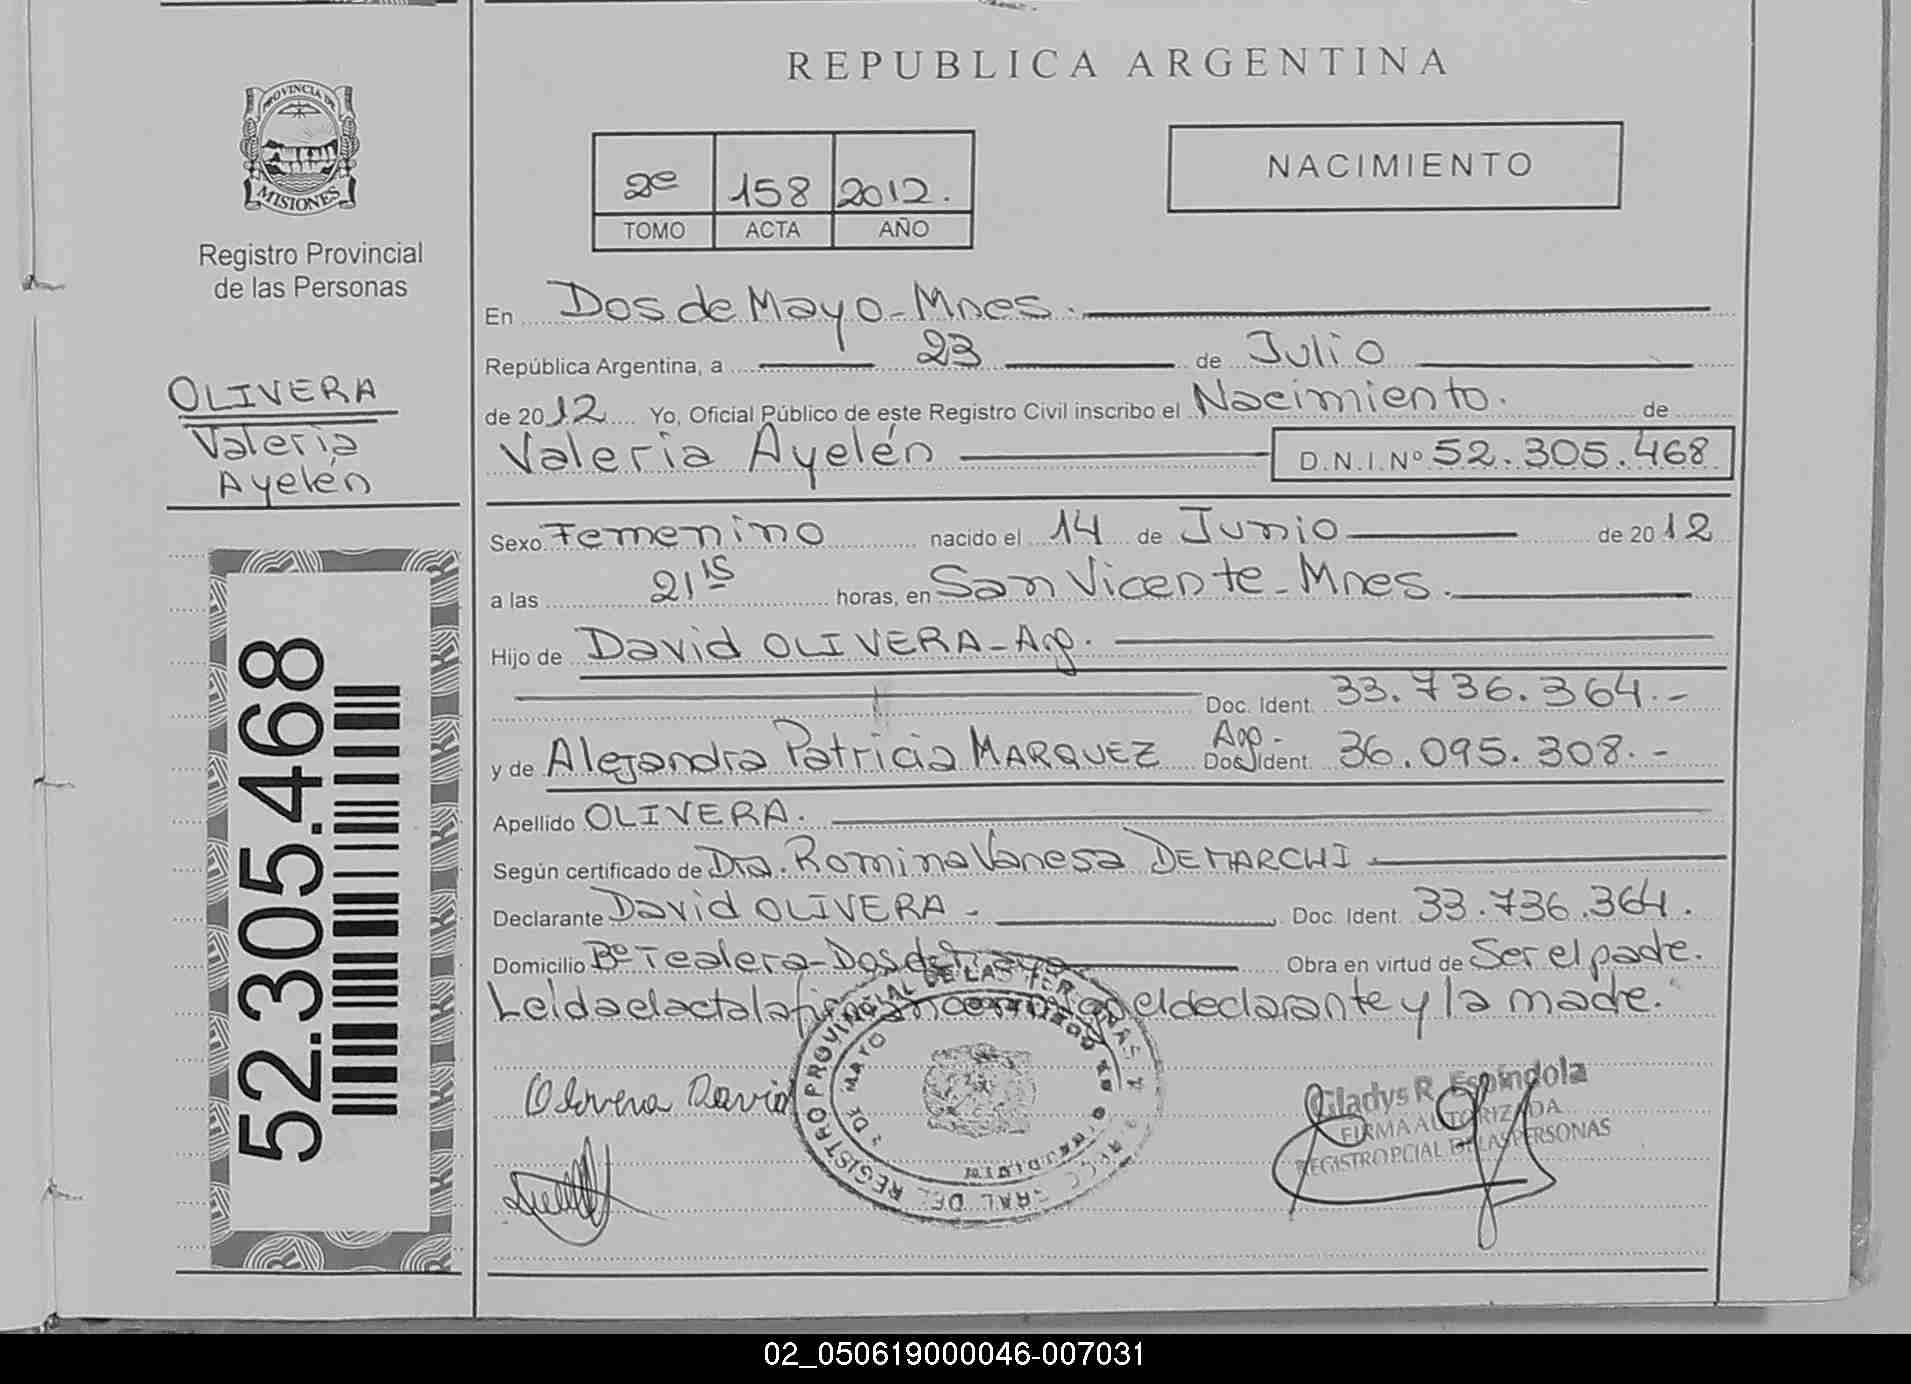 REPUBLICA ARGENTINA
PROVINCIA DE
MISIONES
Registro Provincial
de las Personas
2º 158 2012.
TOMO ACTA AÑO
NACIMIENTO
OLIVERA
Valeria
Ayelén
52.305.468
En Dos de Mayo - Mnes.
República Argentina, a 23 de Julio
de 2012 Yo, Oficial Público de este Registro Civil inscribo el Nacimiento. de
Valeria Ayelén D.N.I.Nº 52.305.468
Sexo Femenino nacido el 14 de Junio de 2012
a las 21 15 horas, en San Vicente - Mnes.
Hijo de David OLIVERA - Arg.
Doc. Ident. 33.736.364.-
y de Alejandra Patricia MARQUEZ Arg - Doc. Ident. 36.095.308.-
Apellido OLIVERA.
Según certificado de Dra. Romina Vanesa DEMARCHI
Declarante David OLIVERA - Doc. Ident. 33.736.364.
Domicilio Bº Tealera - Dos de Mayo Obra en virtud de Ser el padre.
Leida el acta la firman conmigo el declarante y la madre.
Olivera David
GRAL DEL REGISTRO PROVINCIAL DE LAS PERSONAS
2 DE MAYO
Gladys R. Espindola
FIRMA AUTORIZADA
REGISTRO PCIAL DE LAS PERSONAS
02_050619000046-007031